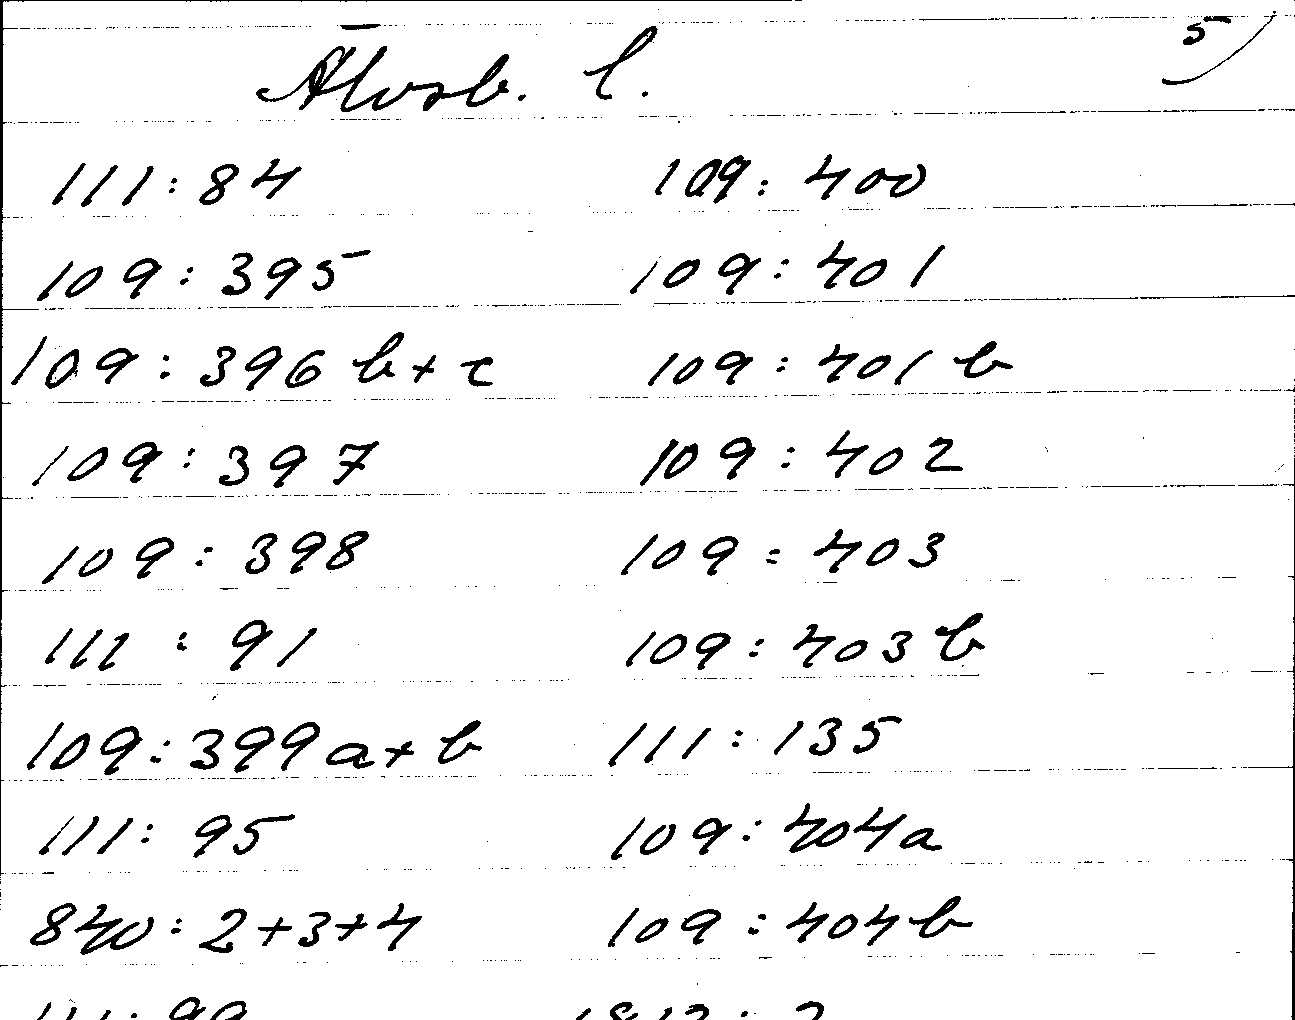 5
Älvsb. l.
111:84 109:400
109:395 109:401
109:396 b+c 109:401 b
109:397 109:402
109:398 109:403
111:91 109:403 b
109:399 a+b 111:135
111:95 109:404a
840:2+3+4 109:404b